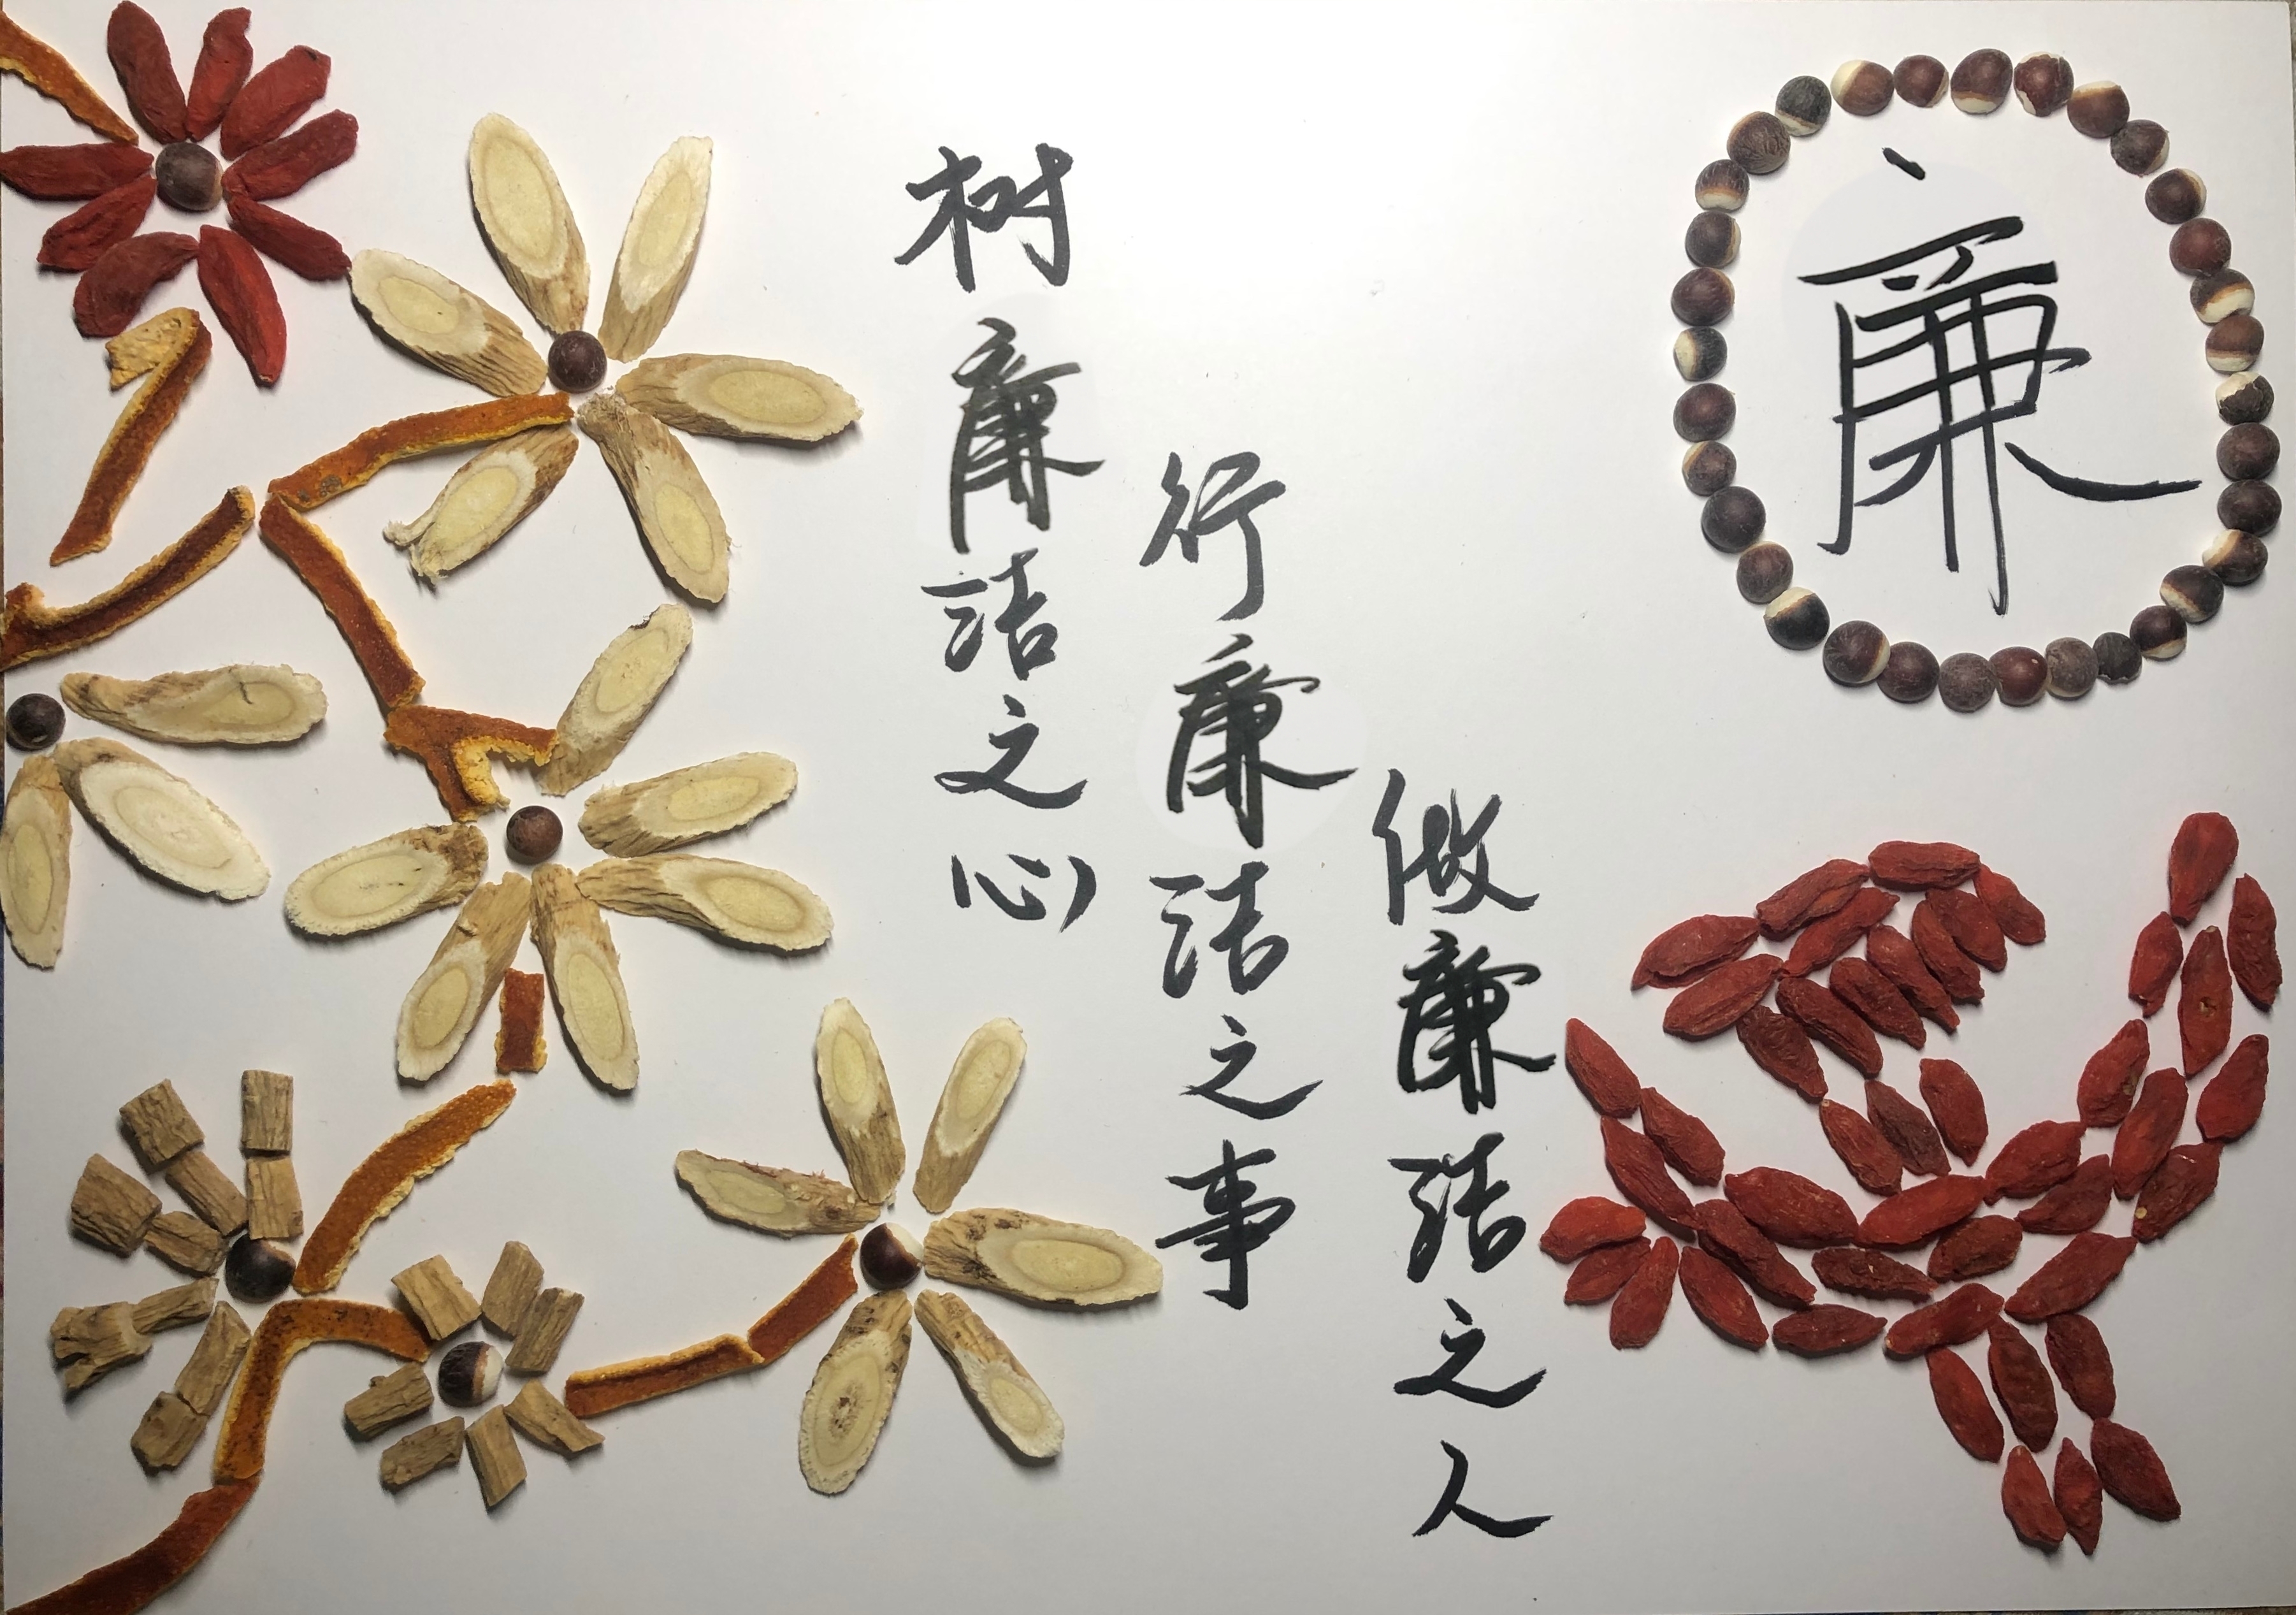 廉
树廉洁之心
行廉洁之事
做廉洁之人